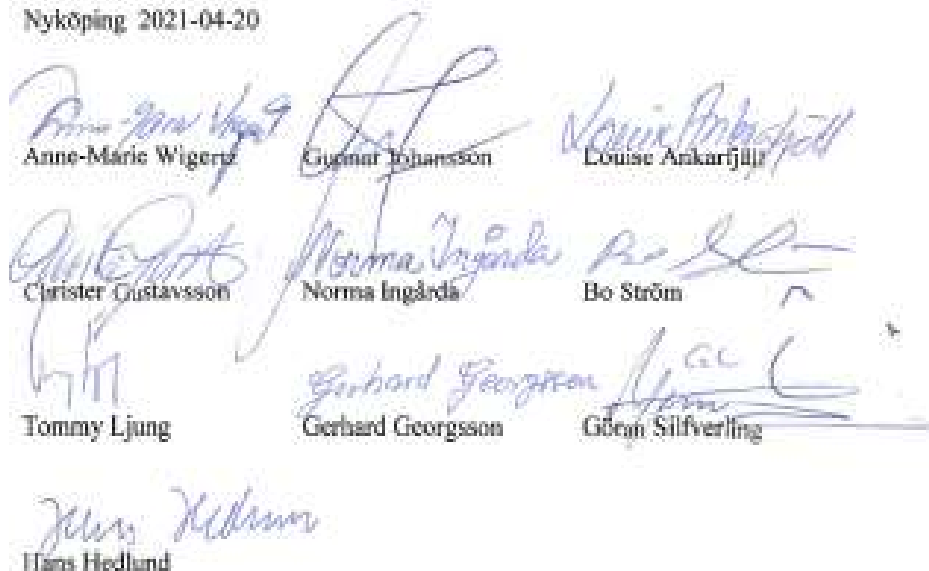 Nyköping 2021-04-20
Anne-Marie Wigertz Gunnar Johansson Louise Ankarfjäll
Christer Gustavsson Norma Ingårda Bo Ström
Norma Ingårda
Tommy Ljung Gerhard Georgsson Göran Silfverling
Gerhard Georgsson
Hans Hedlund